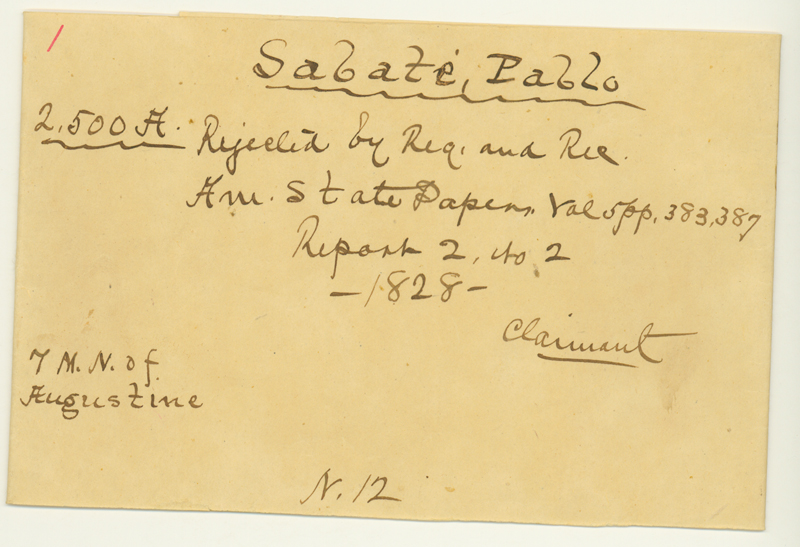 /
Sabaté, Pablo
2,500 A. Rejected by Reg. and Rec.
Am. State Papers, Vol 5 pp, 383, 387
Report 2, No 2
-1828-
Claimant
7 M. N. of
Augustine
N. 12